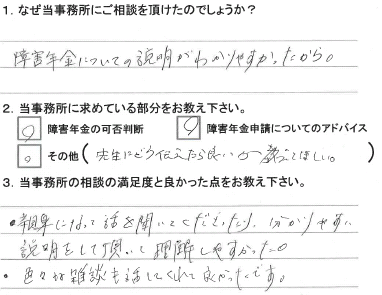 1. なぜ当事務所にご相談を頂けたのでしょうか?
障害年金についての説明がわかりやすかったから。
2. 当事務所に求めている部分をお教え下さい。
障害年金の可否判断 障害年金申請についてのアドバイス
その他(先生にどう伝えたら良いか教えてほしい。)
3. 当事務所の相談の満足度と良かった点をお教え下さい。
・親身になって話を聞いてくださったり、分かりやすい
説明をして頂いて理解しやすかった。
・色々な雑談も話してくれて良かったです。